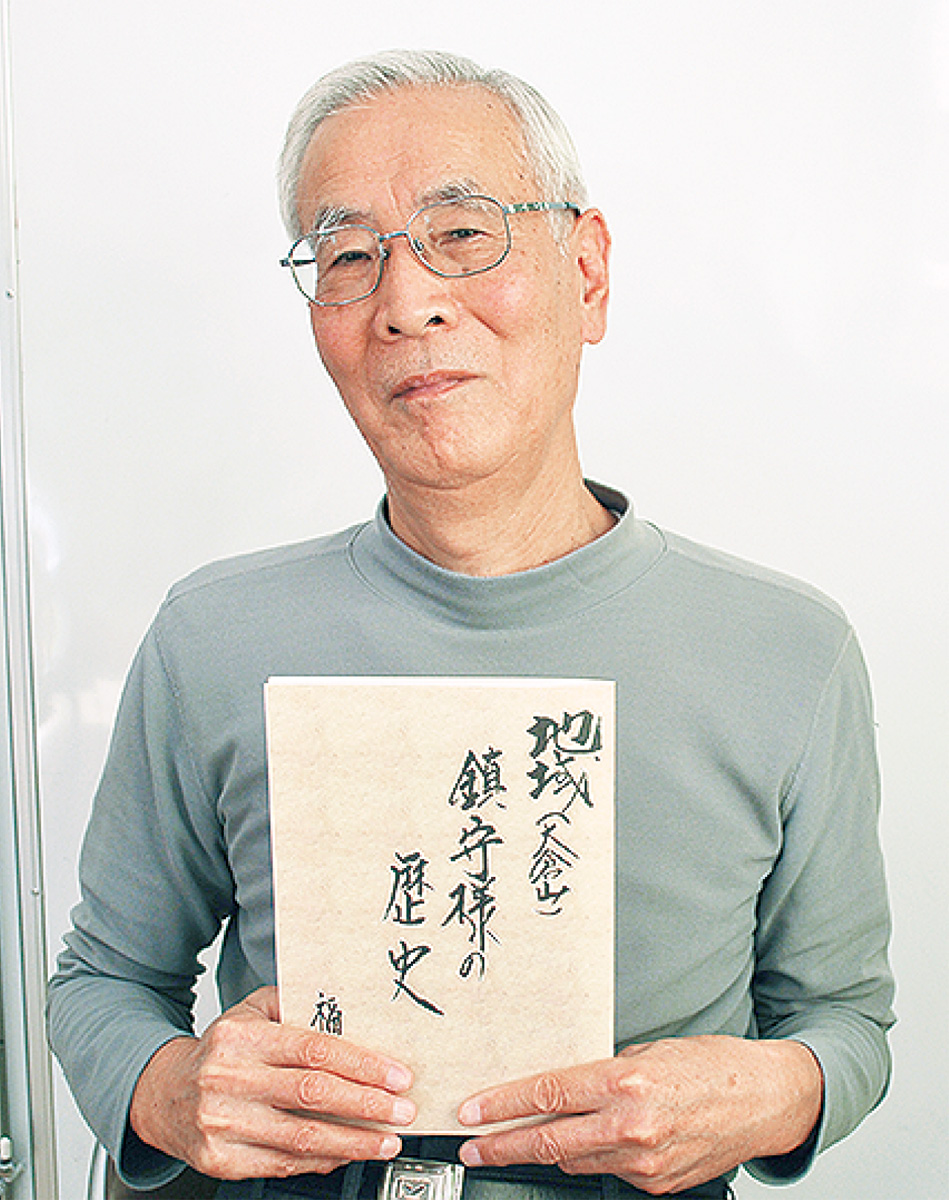 地域(大倉山)
鎮守様の
歴史
福